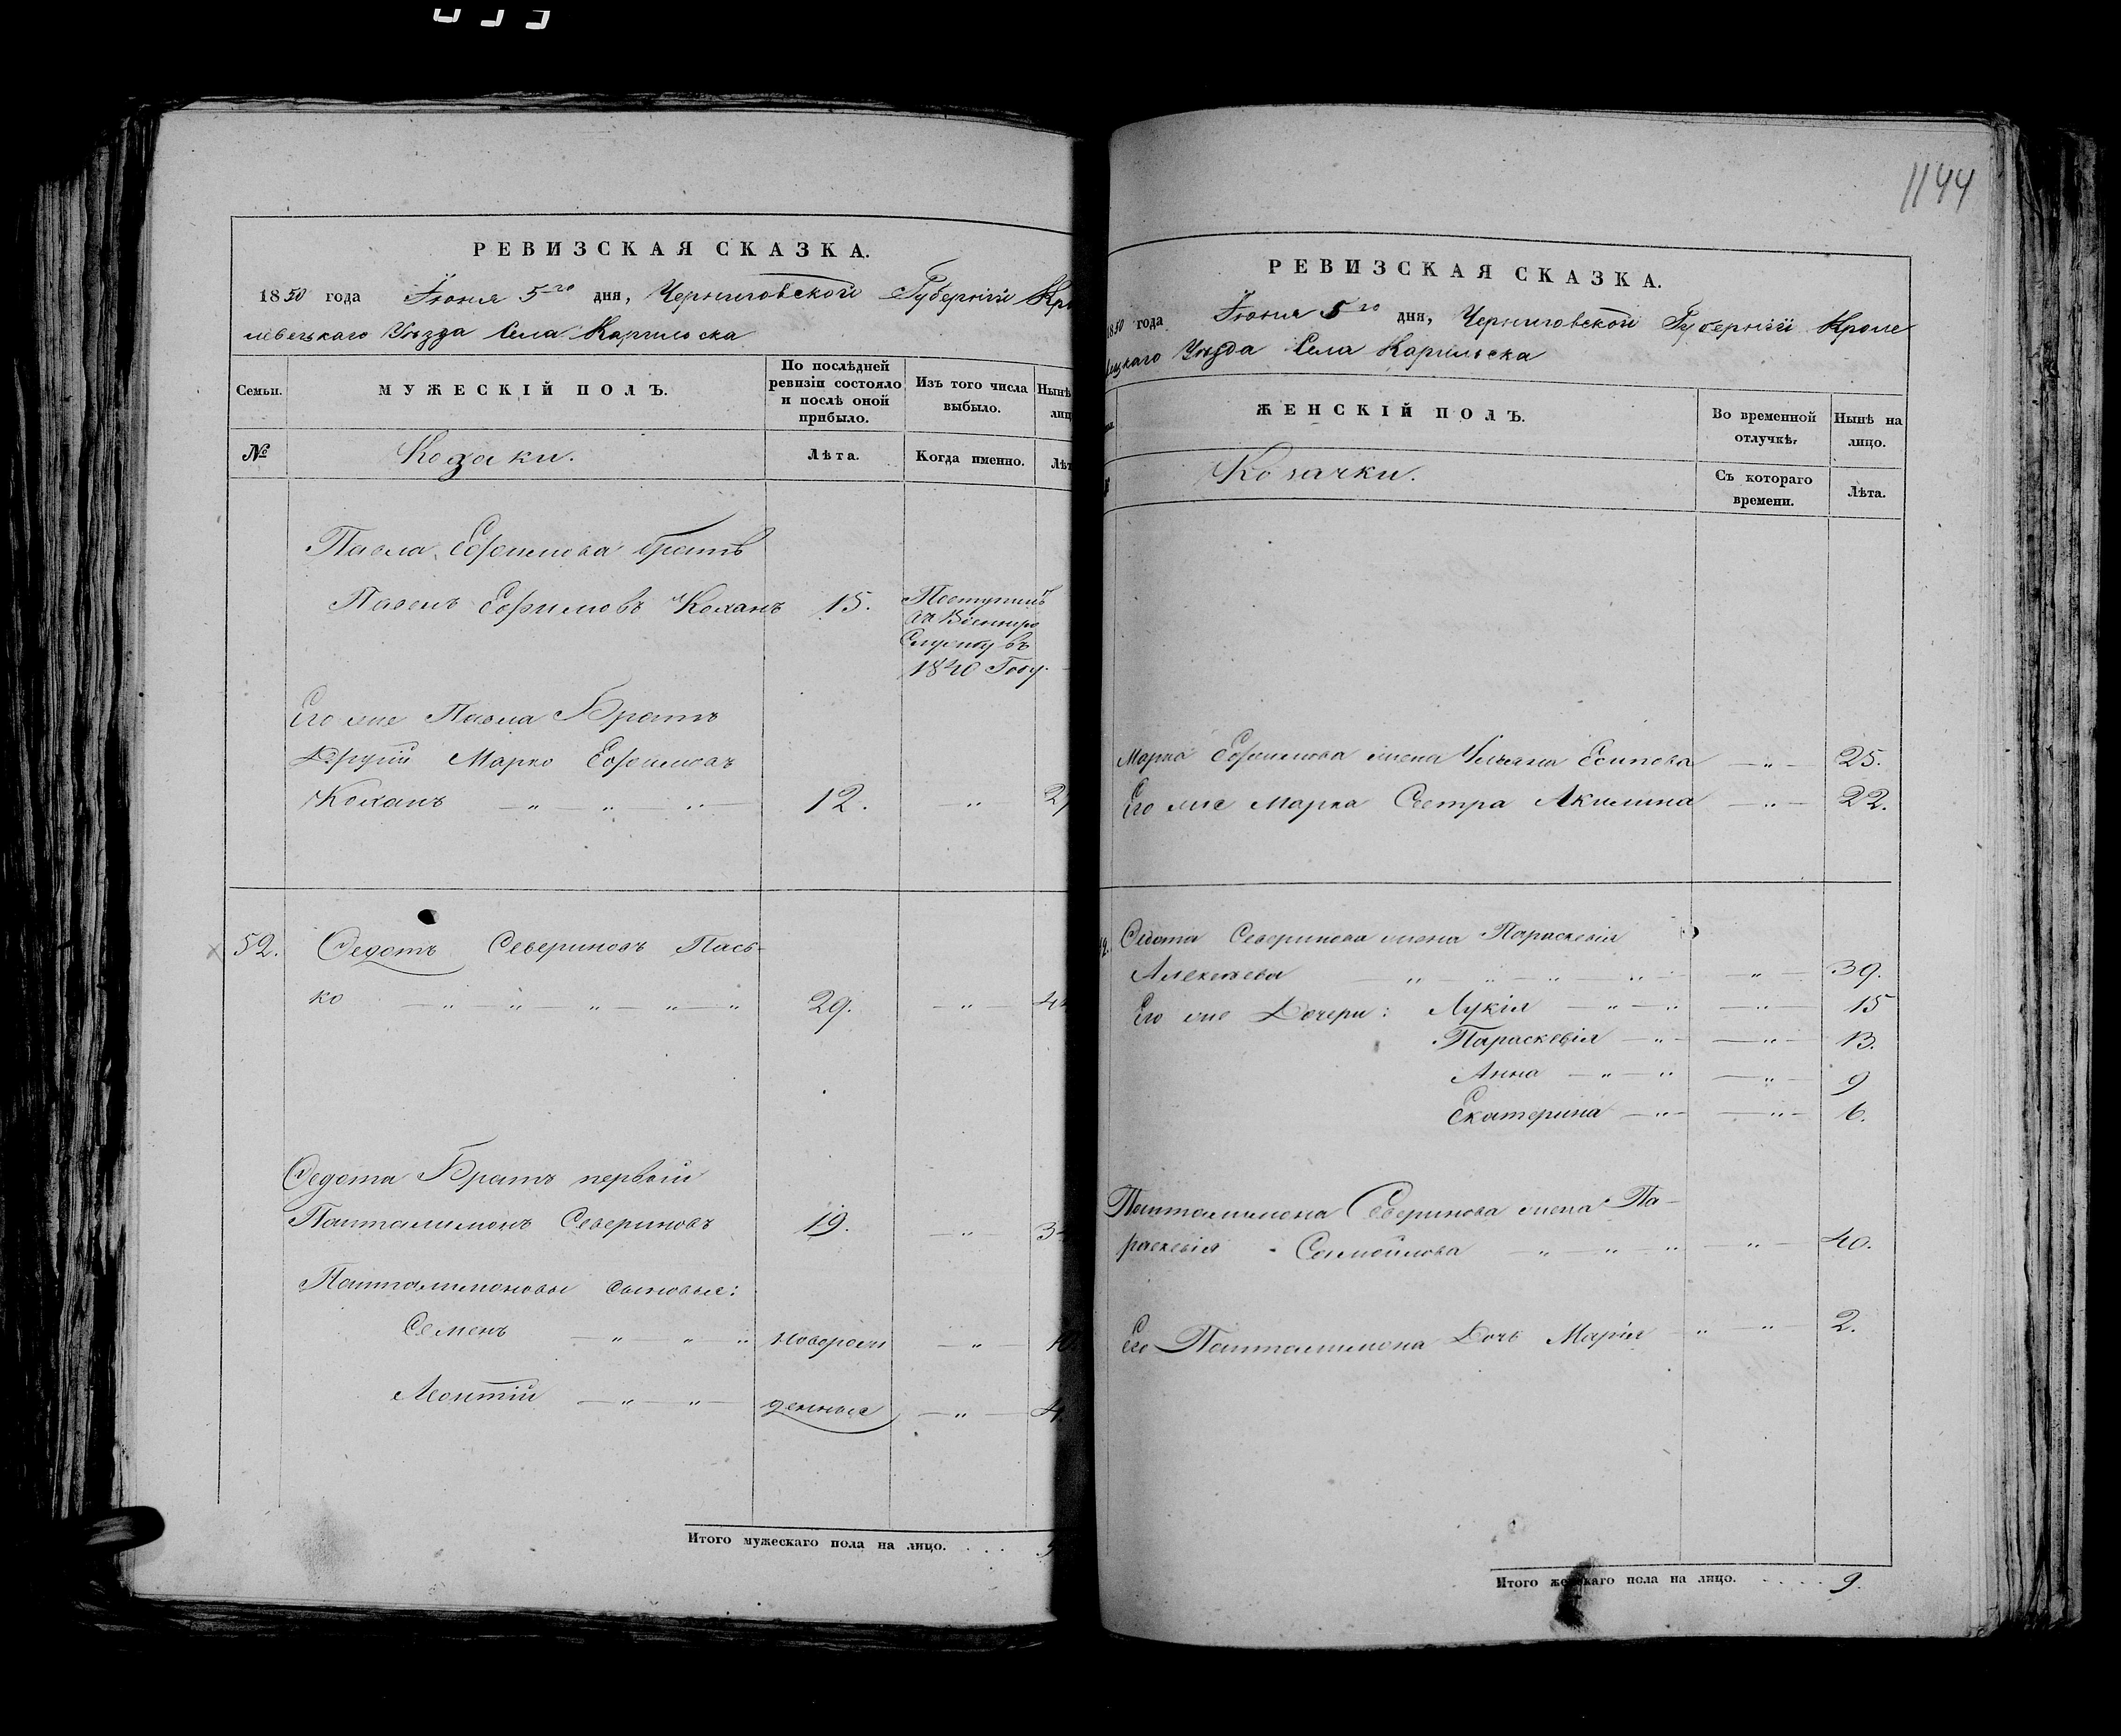 1144
РЕВИЗСКАЯ СКАЗКА.
1850 года Іюня 5го дня, Черниговской Губерніи Кро
левецкаго Уѣзда Села Каринльска
Семьи.
МУЖЕСКІЙ ПОЛЪ.
По послѣдней ревизіи состояло и послѣ оной прибыло.
Изъ того числа выбыло.
Нынѣ
лиц
№
Козаки.
Лѣта.
Когда именно.
Лѣт
Павла Ефимова братъ
Павелъ Ефимовъ Коханъ 15. Поступилъ
въ Военную
Службу въ
1840 Году.
Его же Павла Братъ
Другий Марко Ефимовъ
Коханъ — „ — „ — „ — 12. — „ — 2
52. Федотъ Севериновъ Пась-
ко — „ — „ — „ — „ — „ 29. — „ — 44
Федота Братъ первый
Панталимонъ Севериновъ 19. — „ — 3
Панталимоновы сыновья:
Семенъ — „ — „ — „ новорож — „ —
Леонтій — „ — „ — денные — „ — 4.
Итого мужескаго пола на лицо. . . . 5
РЕВИЗСКАЯ СКАЗКА.
1850 года Іюня 5го дня, Черниговской Губерніи Кроле
вецкаго Уѣзда Села Карильска
ЖЕНСКІЙ ПОЛЪ.
Во временной отлучкѣ.
Нынѣ на лицо.
Козачки.
Съ котораго времени.
Лѣта.
Марка Ефимова жена Ульяна Есипова — „ — 25.
Его же Марка Сестра Акилина — „ — 22.
2. Федота Северинова жена Параскевія
Алексѣева — „ — „ — „ — „ — „ — 39.
Его же Дочери: Лукія — „ — „ — „ — 15
Параскевія — „ — — „ — 13.
Анна — „ — „ — „ — 9
Екатерина — „ — — „ — 6.
Панталимона Северинова жена Па-
раскевія Самойлова — „ — „ — „ — „ — 40.
Его Панталимона Дочь Марія — „ — „ — 2.
Итого женскаго пола на лицо. . . . . 9.